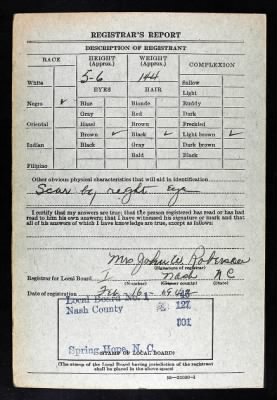 REGISTRAR'S REPORT
DESCRIPTION OF REGISTRANT
RACE HEIGHT (Approx.) WEIGHT (Approx.) COMPLEXION
White 5-6 144 Sallow
EYES HAIR Light
Negro ✓ Blue Blonde Ruddy
Gray Red Dark
Oriental Hazel Brown Freckled
Brown ✓ Black ✓ Light brown ✓
Indian Black Gray Dark brown
Bald Black
Filipino
Other obvious physical characteristics that will aid in identification
Scar by right Eye
I certify that my answers are true; that the person registered has read or has
had read to him his own answers; that I have witnessed his signature or mark and that
all of his answers of which I have knowledge are true, except as follows:
Mrs John W Robinson
(Signature of registrar)
Registrar for Local Board I Nash N C
(Number) (City or county) (State)
Date of registration Feb 16 1942
Local Board No. 1
Nash County 127
001
Spring Hope, N. C.
(STAMP OF LOCAL BOARD)
(The stamp of the Local Board having jurisdiction of the registrant
shall be placed in the above space)